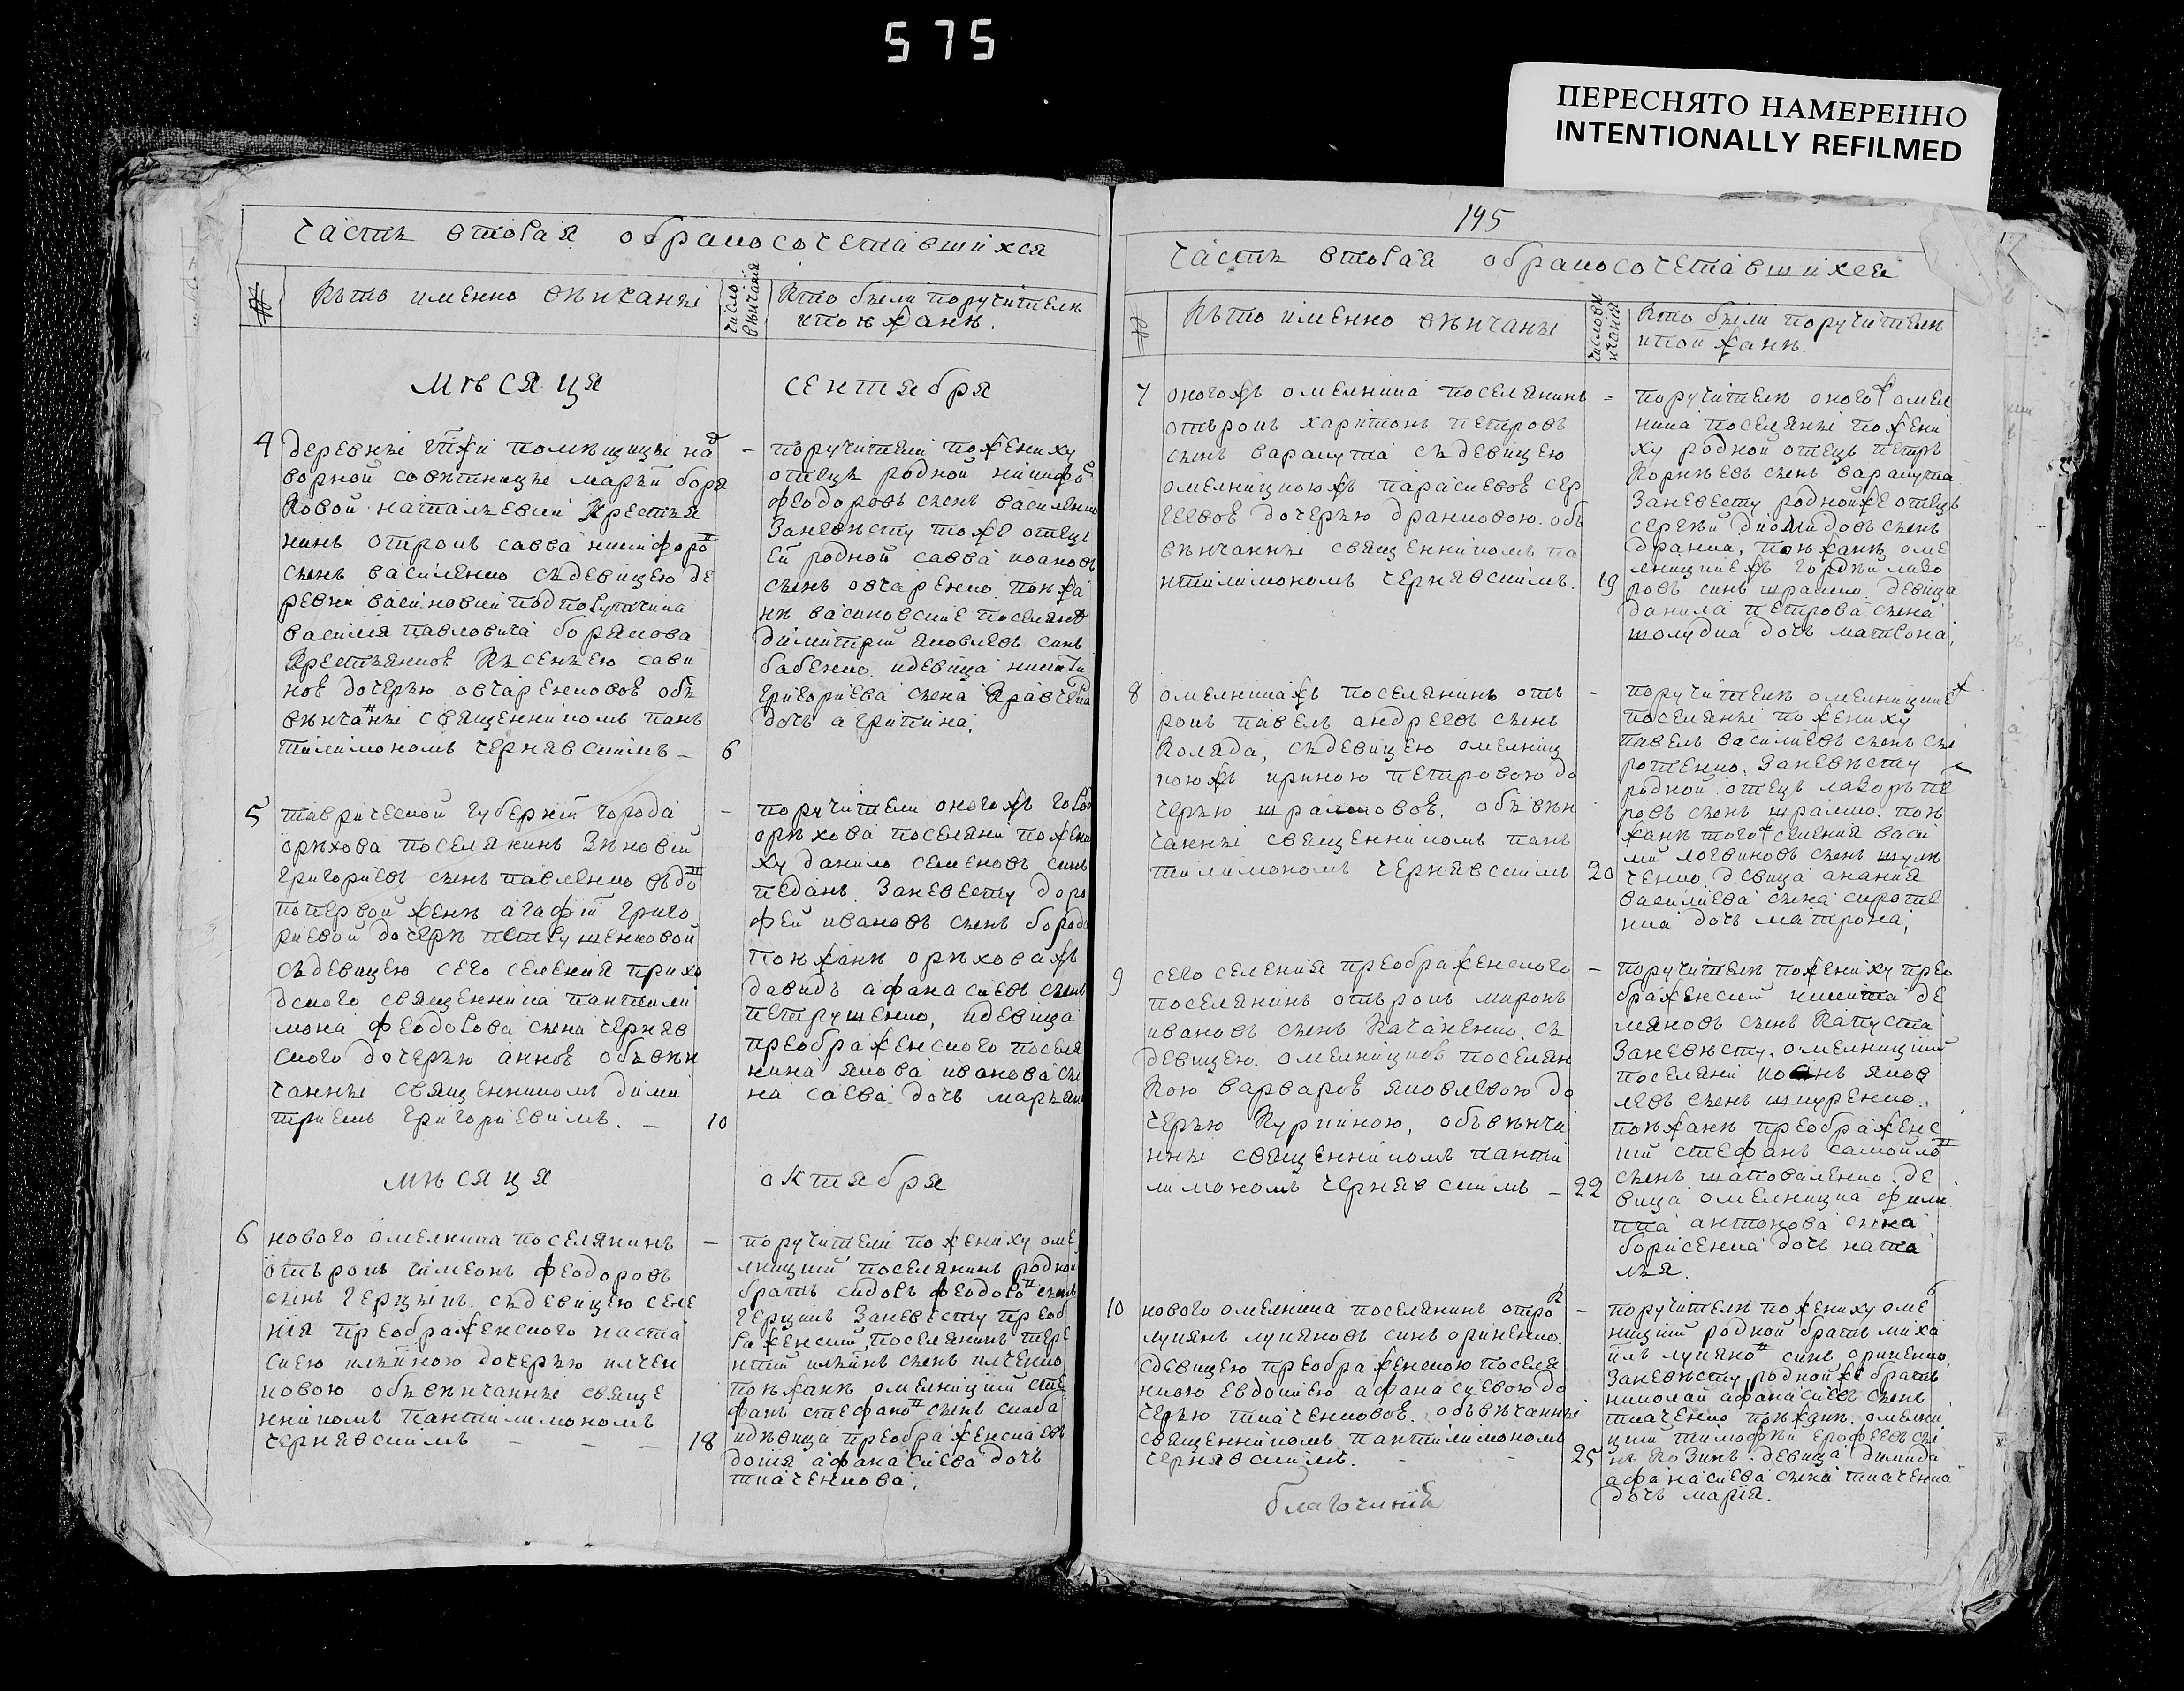 575
ПЕРЕСНЯТО НАМЕРЕННО
INTENTIONALLY REFILMED
часть вторая обракосочетавшихся
№
Кьто именно вѣнчаны
число вѣнчания
Кто были поручители
и поѣжанѣ.
мѣсяця
сентября
4
деревны помѣщицы над
ворной совѣтницы марьи боря
ковой наталевки крестья
нинъ отрокъ савва никифоровъ
сынъ василенко съдевицею де
ревни васиновки подпоручика
василия павловича борякова
крестьянкоѣ Ксенѣею сави
ноѣ дочерью овчаренковоѣ обь
вѣнчаны священникомъ пан
тилимономъ чернявскимъ –
6
– поручители пожениху
отецъ родной никифоръ
феодоровъ сынъ василенко
Заневѣсту тоже отецъ
ей родной савва иоановъ
сынъ овчаренко. поѣжа
нѣ васиновские поселяне
димитрий яковлевъ синъ
бабенко. идевица никити
григориева сына Кравченка
дочь агрипина.
5
таврической губернии города
орѣхова поселянинъ Зѣновий
григориевъ сынъ павленко вьдовъ
попервой женѣ агафии григо
риевой дочерѣ петрушенковой
съдевицею сего селения прихо
дского священника пантили
мона феодорова сына черняв
ского дочерью анноѣ объвѣн
чанны священникомъ дими
триемъ григориевимъ. –
10
– поручители оногожъ горо
орѣхова поселяни пожени
ху данило семеновъ синъ
педанъ. Заневесту доро
фей ивановъ сынъ бород
поѣжанѣ орѣховажъ
давидъ афанасиевъ сынъ
петрушенко, идевица
преображенского поселя
нина якова иванова сы
на саева дочь марья
мѣсяця
октября
6
нового омелника поселянинъ
отърокъ симеонъ феодоровъ
сынъ герцыкъ. съдевицею селе
ния преображенского наста
сиею илѣиною дочерью илчен
ковою объвѣнчанны свяще
нникомъ пантилимономъ
чернявскимъ – – –
18
– поручители пожениху оме
лницкий поселянинъ родной
братъ сидоръ феодоровъ сынъ
герцикъ Заневесту преоб
раженский поселянинъ тере
нтий илѣинъ сынъ илченко
поѣжанѣ омелницкий сте
фанъ стефановъ сынъ скиба
идѣвица преображенская ев
докия афанасиева дочь
ткаченкова.
195
часть вторая обракосочетавшихся
№
Кьто именно вѣнчаны
число вѣнчания
Кто были поручителѣ
и поѣжанѣ
7
оногожъ омелника поселянинъ
отърокъ харитонъ петровъ
сынъ варакута съдевицею
омелницкоюжъ параскевоѣ сер
геевоѣ дочерью дранковою. объ
вѣнчанны священникомъ па
нтилимономъ чернявскимъ.
19
– поручителѣ оногож омел
ника поселяны пожени
ху родной отецъ петръ
Корнѣевъ сынъ варакута
Заневесту роднойже отецъ
сергѣй диомидовъ сынъ
дранка, поѣжанѣ оме
лницкиежъ гордѣй лаво
ровъ синъ шрамко. девица
данила петрова сына
шолудка дочь матрона,
8
омелникажъ поселянинъ отъ
рокъ павелъ андреевъ сынъ
коляда, съдевицею омелниц
коюжъ ириною петровою до
черью шрамковоѣ. объвѣн
чанны священникомъ пан
тилимономъ чернявскимъ
20
– поручителѣ омелницкиеж
поселяны пожениху
павелъ василиевъ сынъ сы
ротенко. Заневѣсту
родной отецъ лаворъ пе
ровъ сынъ шрамко. поѣ
жанѣ тогож селения васи
лий логвиновъ сынъ шулѣ
ченко. девица анания
василиева сына сироте
нка дочь матрона,
9
сего селения преображенского
поселянинъ отърокъ миронъ
ивановъ сынъ Качаненко. съ
девицею. омелницкоѣ поселян
кою варвароѣ яковлевою до
черью Куркиною, объвѣнча
нны священникомъ панти
лимономъ чернявскимъ –
22
– поручителѣ пожениху прео
браженский никита де
мяновъ сынъ капуста
Заневѣсту. омелницкий
поселяни яков
левъ сынъ шкуренко.
поѣжанѣ преображенс
кий стефанъ самойловъ
сынъ шаповаленко. де
вица омелницка фили
ппа антонова сына
борисенка дочь ната
лья.
10
нового омелника поселянинъ отрок
лукянъ лукяновъ синъ ориненко
сдевицею преображенскою поселя
нкою Евдокиею афанасиевою до
черью ткаченковоѣ. объвѣнчанны
священникомъ пантилимономъ
чернявскимъ. – –
25
– поручителѣ пожениху омел
ницкий родной братъ миха
илъ лукяновъ синъ ориненко
Заневѣсту роднойже братъ
николай афанасиевъ сынъ
ткаченко поѣжанѣ. омелни
цкий тимофѣй ерофеевъ сы
нъ козинъ. девица димида
афанасиева сына ткаченка
дочь мария.
благочиний